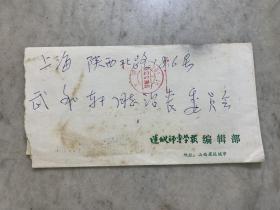 上海 陕西北路186号
武和轩同志治丧委员会
运城师专学报 编辑部
地址：山西省运城市